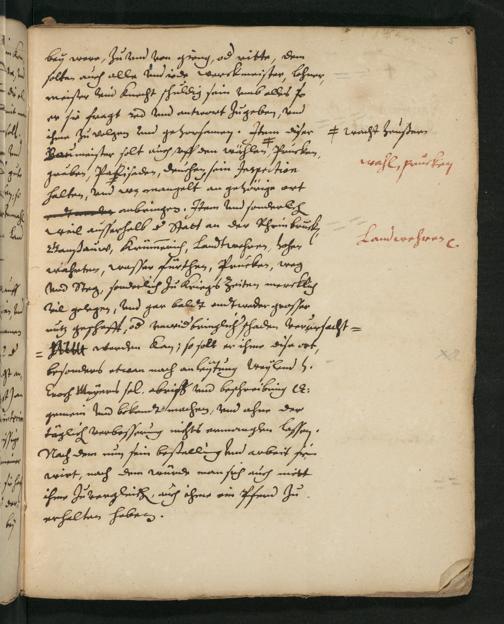 beÿ were, zu und von gieng, od ritte, dem
solten auch alle und iede werckmeister, lohner,
meister und knecht schuldig sein umb alles so
er sie fragt red und antwort zugeben, und
ihme zu volgen und gehorsamen. Item diser
Baumeister solt auch uff den wählen, Prucken,
graben, Pallisaden, deichen sein Inspection
halten, und wo mangelt an gehörige ort
anbringen. Item und sonderlich
weil ausserhalb d Statt an der Rheinbruck,
Landtwehren, hohen
wahrten, wasser furthen, Prucken, weg
und Steg, sonderlich zu Kriegs Zeiten mercklich
vil gelegen, und gar baldt entweder grosser
nutz geschafft, od unwiderbringlich schaden verursacht
werden kan; so solt er ihme dise ort,
besonders etwan nach anleitung weÿland h.
sel. abriss und beschreibung
gemein und bekandt machen, und ohne der
täglich verbesserung nichts ermanglen lassen.
Nach dem nun sein bestallung und arbeit sein
wirt, nach dem würde man sich auch mitt
ihme zu vergleich, auch ihme ein Pferd zu
erhalten haben.
wacht heusern
wähl, prucken
Landwehren